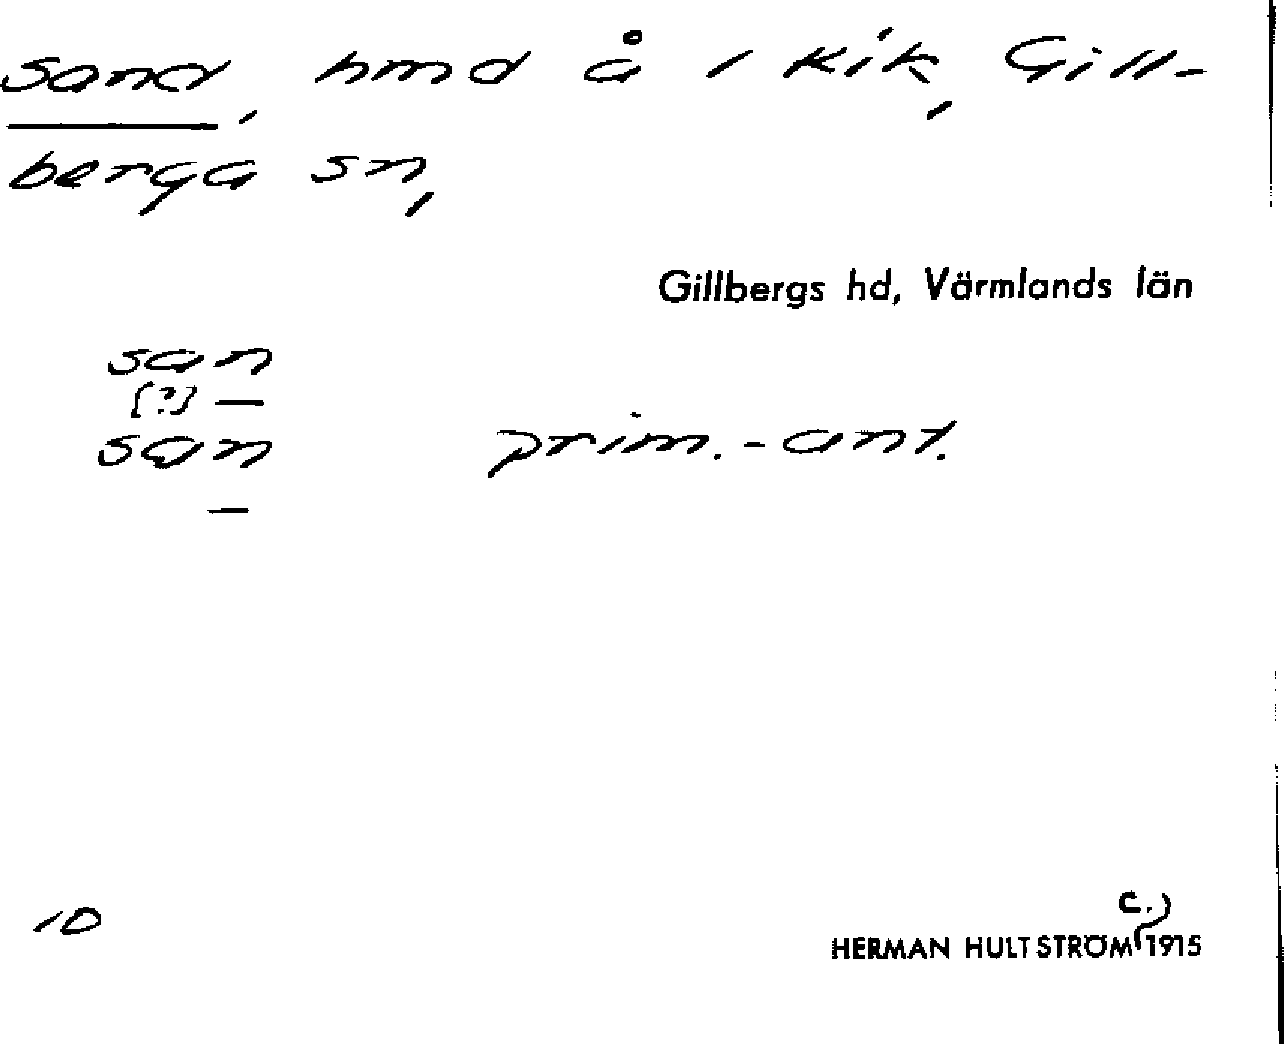 Sand, hmd å 1 Kik, Gill-
berga sn,
Gillbergs hd, Värmlands län
san
[?] —
san prim.-ant.
—
10
c.
HERMAN HULTSTRÖM 1915